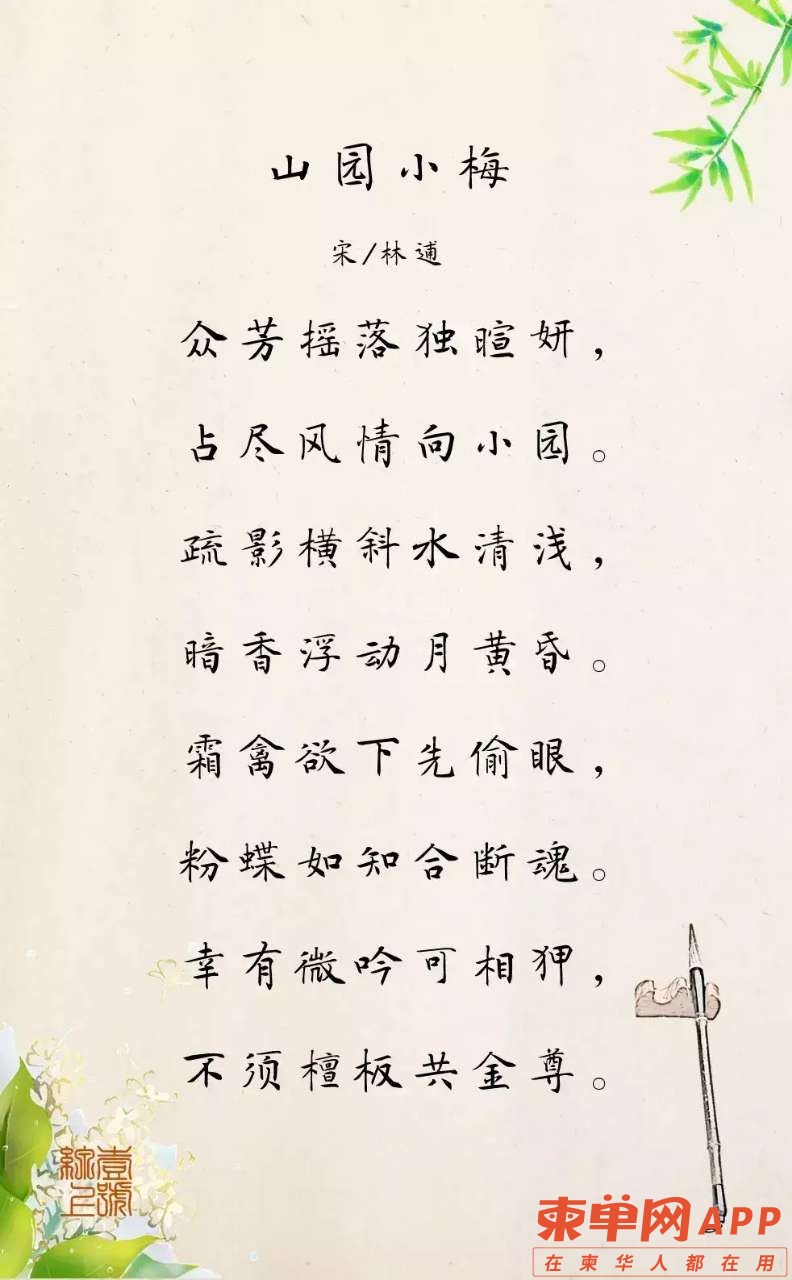 山园小梅
宋/林逋
众芳摇落独暄妍，
占尽风情向小园。
疏影横斜水清浅，
暗香浮动月黄昏。
霜禽欲下先偷眼，
粉蝶如知合断魂。
幸有微吟可相狎，
不须檀板共金尊。
柬单网APP
在柬华人都在用